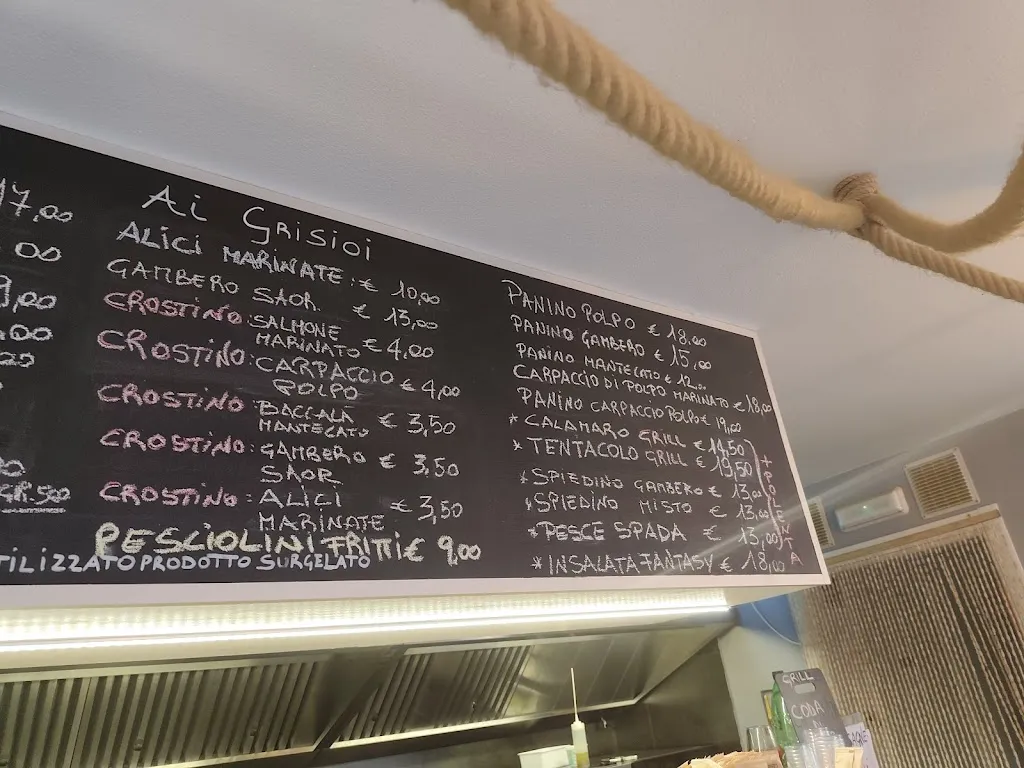 17,00
00
9,00
,00
GR.500
Ai Grisioi
ALICI MARINATE: € 10,00
GAMBERO SAOR. € 13,00
CROSTINO: SALMONE
MARINATO € 4,00
CROSTINO: CARPACCIO
POLPO € 4,00
CROSTINO: BACCALA
MANTECATO € 3,50
CROSTINO: GAMBERO
SAOR € 3,50
CROSTINO: ALICI
MARINATE € 3,50
PESCIOLINI FRITTI € 9,00
TILIZZATO PRODOTTO SURGELATO
PANINO POLPO € 18,00
PANINO GAMBERO € 15,00
PANINO MANTECATO € 12,00
CARPACCIO DI POLPO MARINATO € 18,00
PANINO CARPACCIO POLPO € 19,00
* CALAMARO GRILL € 14,50
* TENTACOLO GRILL € 19,50
* SPIEDINO GAMBERO € 13,00
* SPIEDINO MISTO € 13,00
* PESCE SPADA € 13,00
* INSALATA FANTASY € 18,00
+ POLENTA
GRILL
CODA